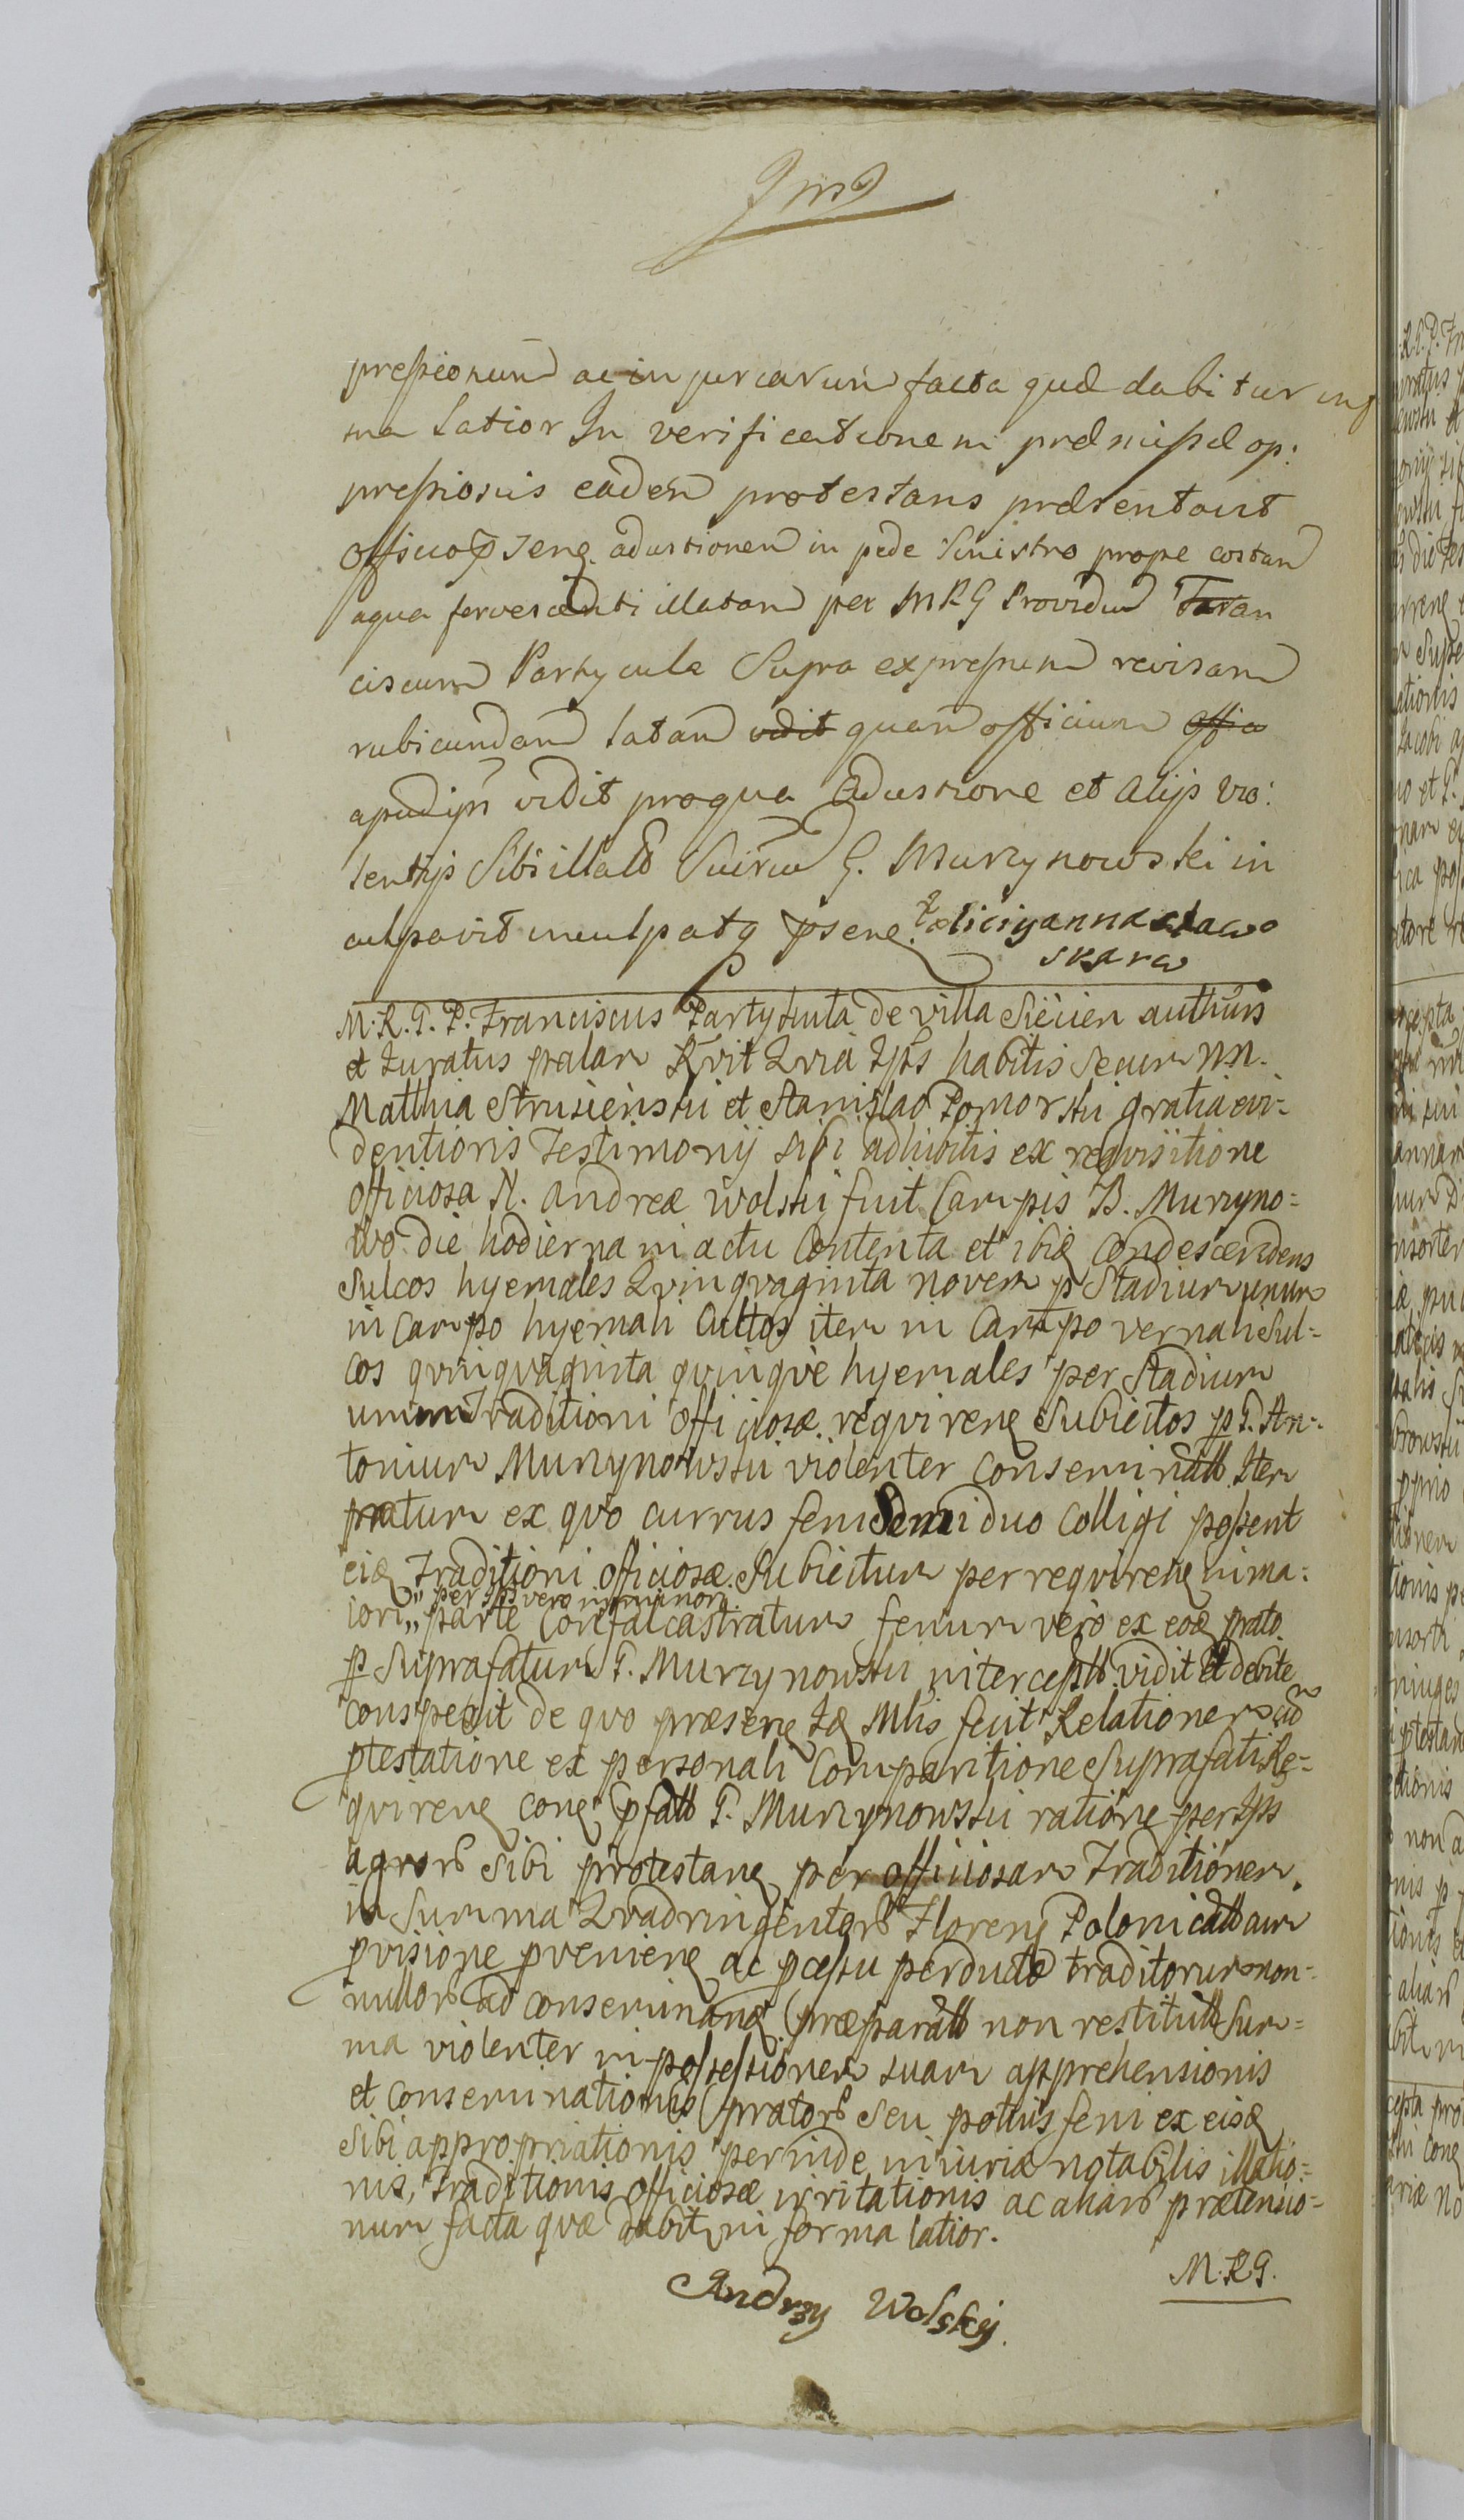 pressionum ac injuriarum facta quæ dabitur inf
ma latior In verificationem præmissæ op:
pressionis eadem protestans præsentavit
officio p sene adustionem in pede sinistro prope costam
aqua fervescenti illatam per MRG Providum Fran
ciscum Partycula Supra expressum revisam
rubicundam latam vidit quam officium offic
apud ips vidit pro qua Adustione et alijs vio:
lentijs Sibi illatis G. Murzynowski in
culpavit inculpatq psene. Feliciyanna
M.R.G.P. Franciscus Partykuta de villa Siecien authūs
et Juratus palam Rvit Qvia Ips habitis secum NN.
Matthia Strusienski et Stanislao Pomorski gratia evi-
dentioris Testimonij sibi adhibitis ex reqvisitione
officiosa N. Andreæ Wolski fuit Campis B. Murzyno-
wo die hodierna in actu Contenta et ibiq Condescendens
Sulcos hyemales Qvinqvaginta novem p Stadium unum
in Campo hyemali Cultos item in Campo vernali Sul-
cos qvinqvaginta qvinqve hyemales per Stadium
unum Traditioni officiosæ reqvirenq Subiectos p G. An-
tonium Murzynowski violenter conseminatt Item
pratum ex qvo currus feni Semi duo Colligi possent
eiq Traditioni officiosæ Subiectum per reqvirenq in ma:
iori,, parte Confalcastratum fenum vero ex eoq prato
,,per Ips vero in minori
p Suprafatum G. Murzynowski interceptt vidit et debite
conspexit de qvo præsenq Iq Mlis fecit Relationem ad
ptestatione ex personali Comparitione Suprafati Re-
qvirenq conq pfatt G. Murzynowski ratione per Ips
agror Sibi protestanq per officiosam Traditionem
in Summa Qvadringentor Florenq Polonicatt cum
pvisione pvenienq ac pcessu perducto traditorum non-
nullor ad conseminanq præparatt non restitutt Sum-
ma violenter in possessionem suam apprehensionis
et conseminationis prator seu potius feni ex eisq
Sibi appropriationis perinde iniuriæ notabilis illatio:
nis, Traditionis officiosæ irritationis ac aliar prætensio-
num facta qvæ dabit in forma latior.
M.R.G.
Andrzy Wolskij.